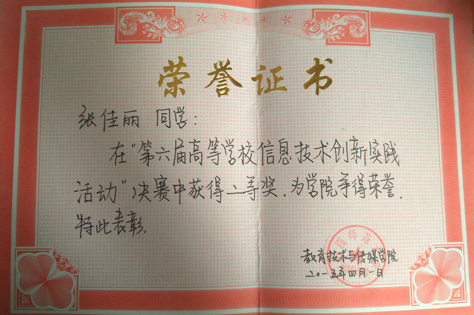 荣誉证书
张佳丽 同学:
在"第六届高等学校信息技术创新实践
活动"决赛中获得二等奖,为学院争得荣誉,
特此表彰.
教育技术与传媒学院
二〇一五年四月一日